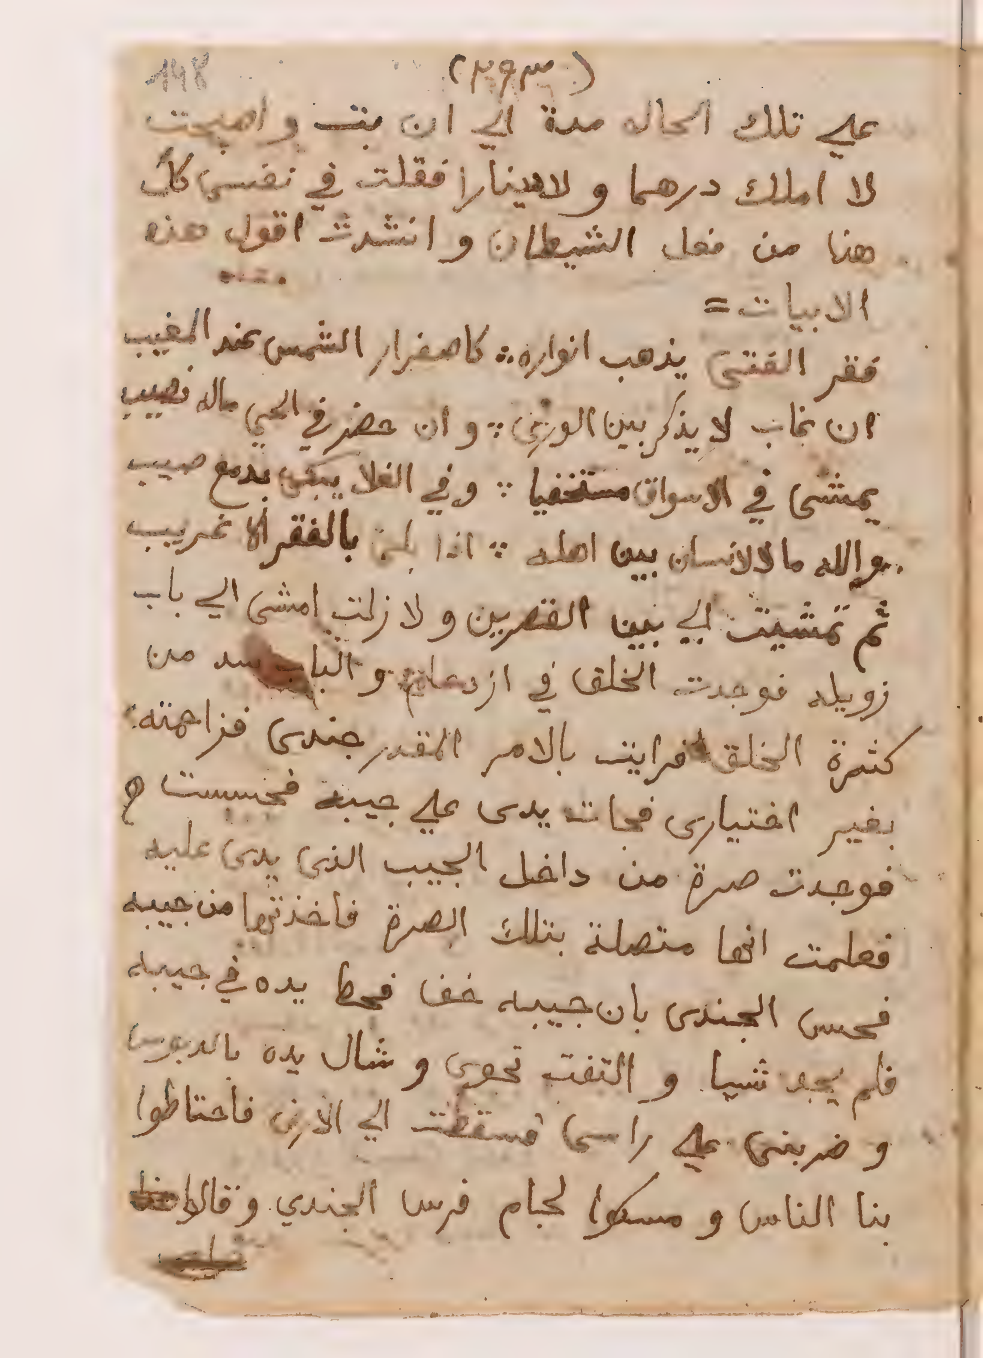 148
(٢٩٣)
علي تلك الحاله مدة الي ان بت و اصبحت
لا املك درهما و لا دينارا فقلت في نفسي كل
هذا من فعل الشيطان و انشدت اقول هذه
الابيات =
فقر الفتى يذهب انواره ∴ كاصفرار الشمس عند المغيب
ان غاب لا يذكر بين الورى ∴ و ان حضر في الحي ماله نصيب
يمشى في الاسواق مستخفيا ∴ و في الفلا يبكى بدمع صبيب
والله ما الانسان بين اهله ∴ اذا بلى بالفقر الا غريب
ثم تمشيت الي بين القصرين و لا زلت امشى الي باب
زويله فوجدت الخلق في ازدحام و الباب سد من
كثرة الخلق فرايت بالامر المقدر جندى فزاحمته
بغير اختيارى فجات يدى علي جيبه فحسست
فوجدت صرة من داخل الجيب الذى يدى عليه
فعلمت انها متصلة بتلك الصرة فاخذتها من جيبه
فحس الجندى بان جيبه خف فحط يده في جيبه
فلم يجد شيا و التفت نحوى و شال يده بالدبوس
و ضربنى علي راسى فسقطت الي الارض فاحتاطوا
بنا الناس و مسكوا لجام فرس الجندي و قالوا